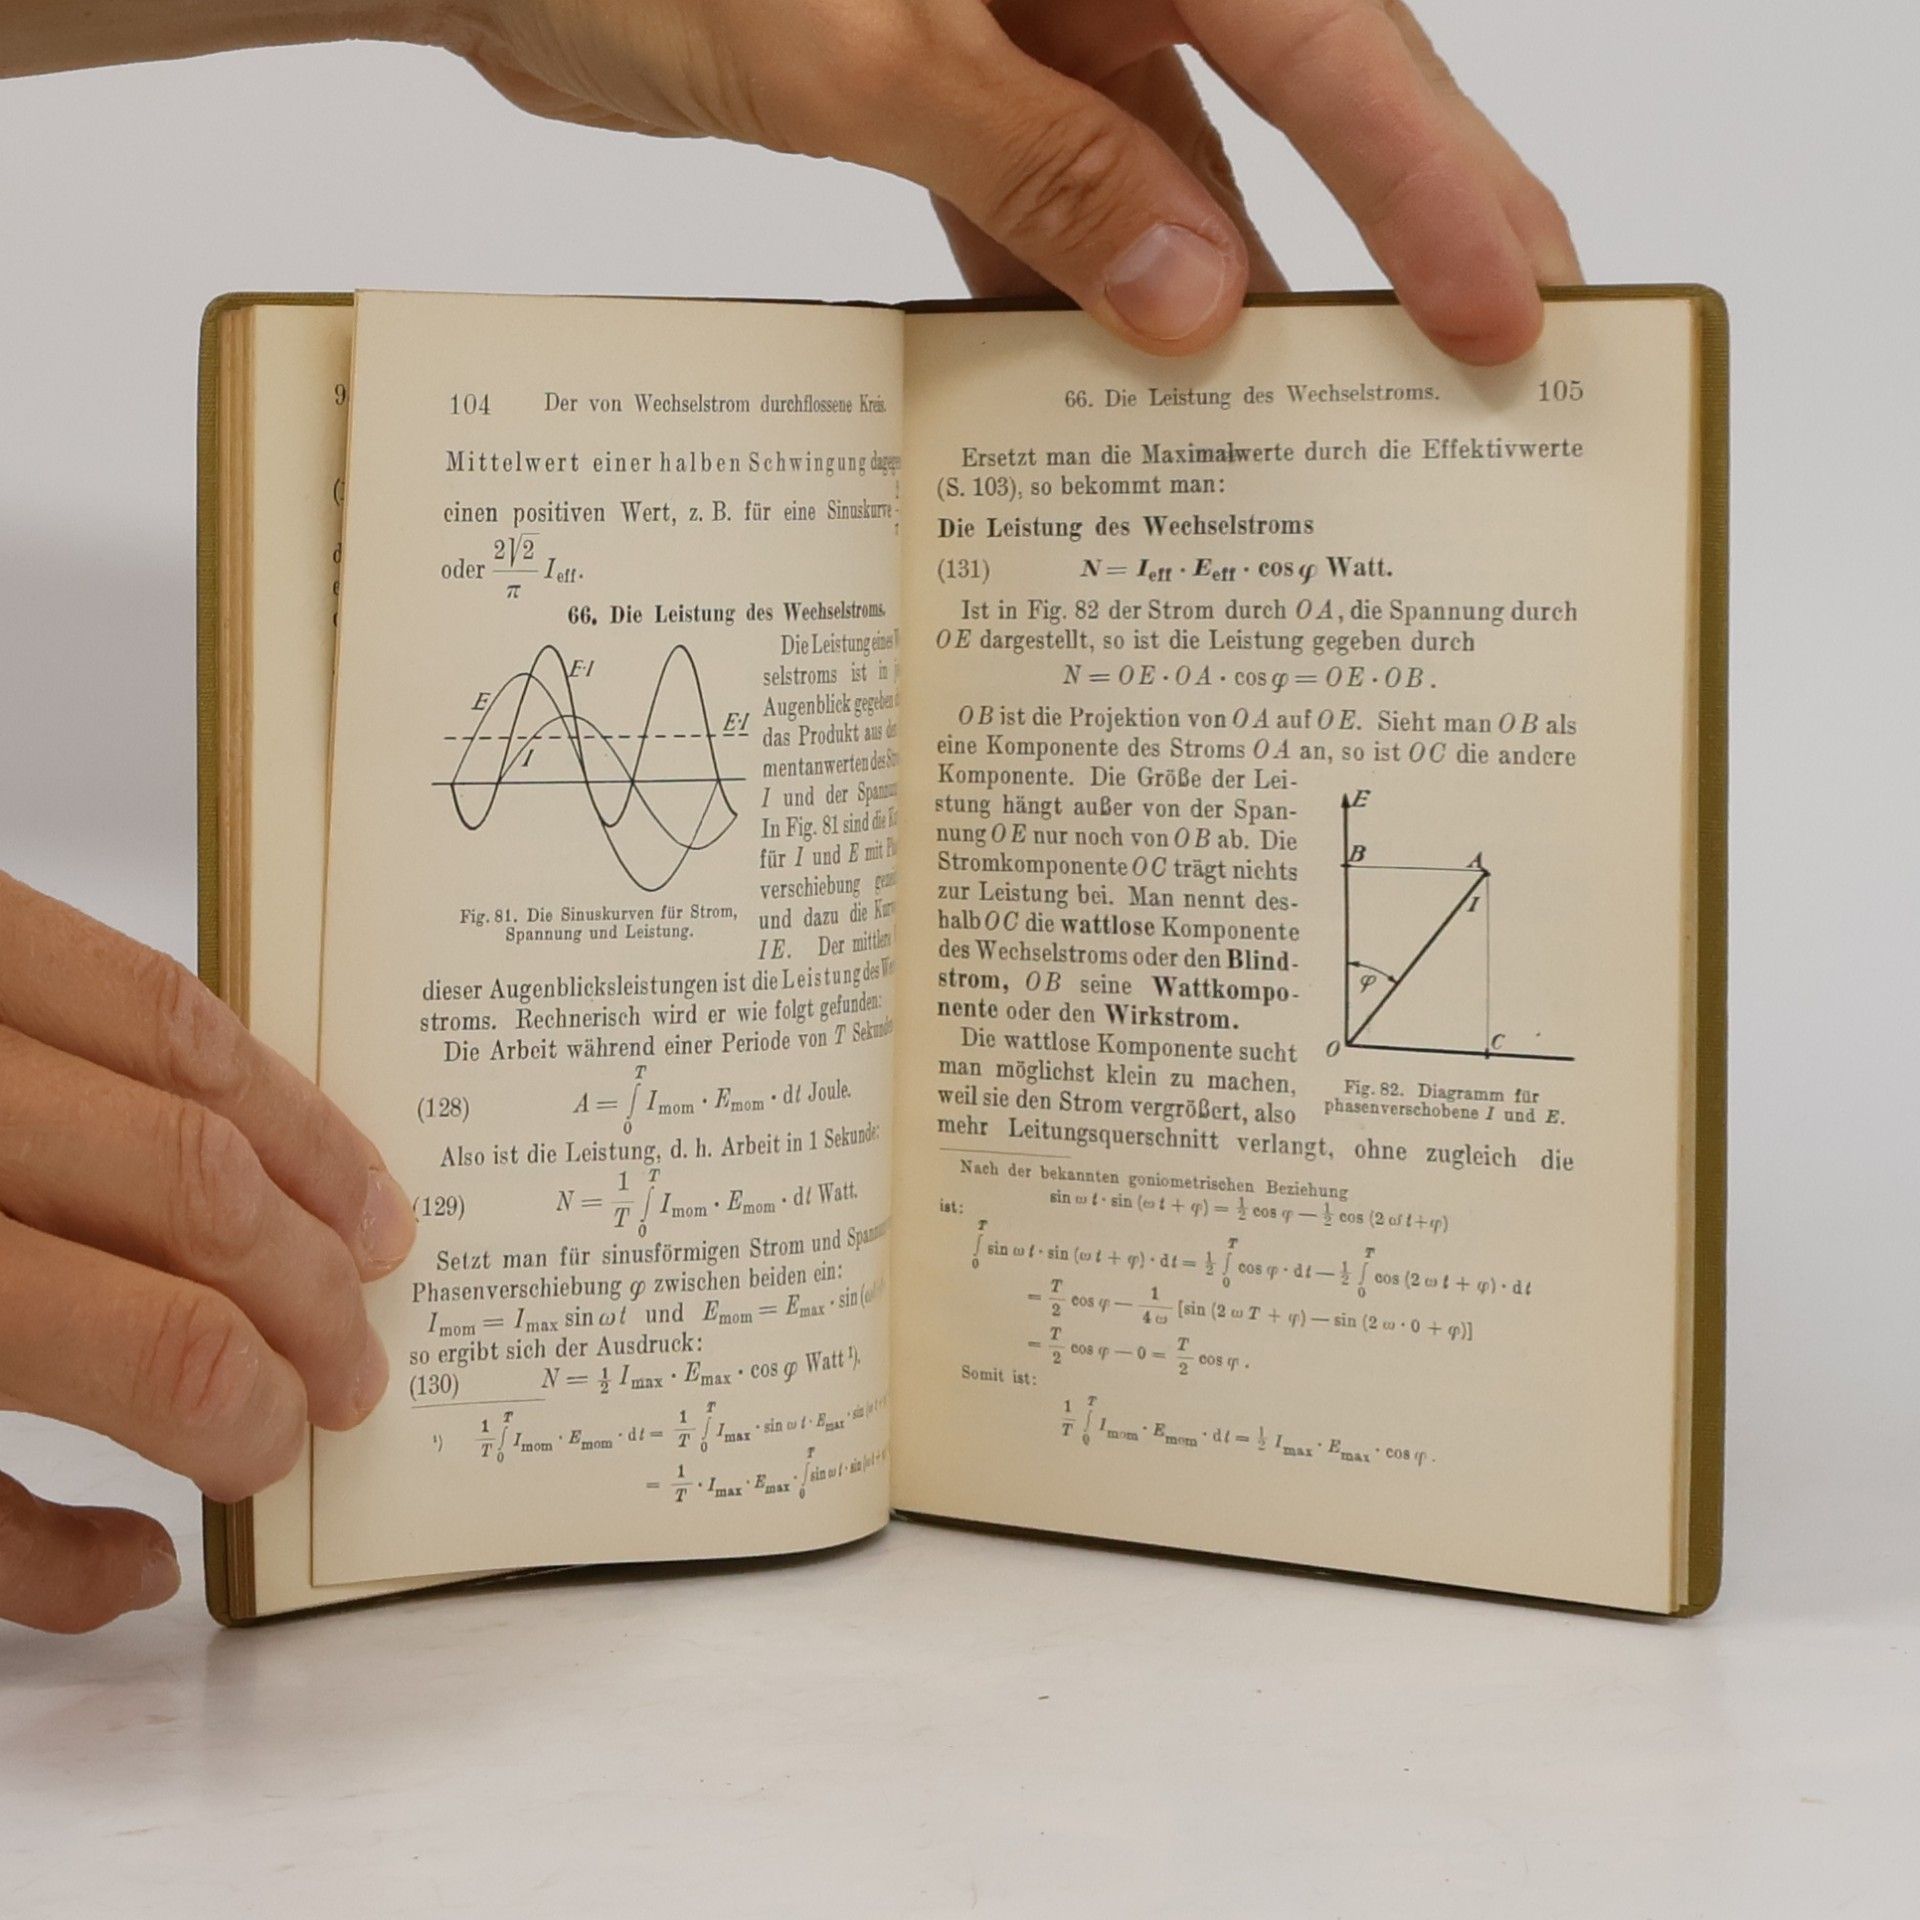 9
104 Der von Wechselstrom durchflossene Kreis.
Mittelwert einer halben Schwingung
einen positiven Wert, z. B. für eine Sinuskurve
oder 2√2/π I_eff.
66. Die Leistung des Wechselstroms.
E
E·I
E·I
I
Fig. 81. Die Sinuskurven für Strom,
Spannung und Leistung.
Die Leistung eines
selstroms ist in
Augenblick gegeben
das Produkt aus
mentanwerten des
I und der
In Fig. 81 sind die
für I und E mit
verschiebung
und dazu die
IE. Der mittlere
dieser Augenblicksleistungen ist die Leistung des
stroms. Rechnerisch wird er wie folgt gefunden:
Die Arbeit während einer Periode von T
(128) A = ∫₀ᵀ I_mom · E_mom · dt Joule.
Also ist die Leistung, d. h. Arbeit in 1 Sekunde:
(129) N = 1/T ∫₀ᵀ I_mom · E_mom · dt Watt.
Setzt man für sinusförmigen Strom und
Phasenverschiebung φ zwischen beiden ein:
I_mom = I_max sin ωt und E_mom = E_max · sin (
so ergibt sich der Ausdruck:
(130) N = ½ I_max · E_max · cos φ Watt ¹).
¹) 1/T ∫₀ᵀ I_mom · E_mom · dt = 1/T ∫₀ᵀ I_max · sin ω t · E_max · sin (
= 1/T · I_max · E_max · ∫₀ᵀ sin ω t · sin (
66. Die Leistung des Wechselstroms. 105
Ersetzt man die Maximalwerte durch die Effektivwerte
(S. 103), so bekommt man:
Die Leistung des Wechselstroms
(131) N = I_eff · E_eff · cos φ Watt.
Ist in Fig. 82 der Strom durch OA, die Spannung durch
OE dargestellt, so ist die Leistung gegeben durch
N = OE · OA · cos φ = OE · OB.
OB ist die Projektion von OA auf OE. Sieht man OB als
eine Komponente des Stroms OA an, so ist OC die andere
Komponente. Die Größe der Lei-
stung hängt außer von der Span-
nung OE nur noch von OB ab. Die
Stromkomponente OC trägt nichts
zur Leistung bei. Man nennt des-
halb OC die wattlose Komponente
des Wechselstroms oder den Blind-
strom, OB seine Wattkompo-
nente oder den Wirkstrom.
Die wattlose Komponente sucht
man möglichst klein zu machen,
weil sie den Strom vergrößert, also
mehr Leitungsquerschnitt verlangt, ohne zugleich die
E
B
A
I
φ
O
C
Fig. 82. Diagramm für
phasenverschobene I und E.
Nach der bekannten goniometrischen Beziehung
sin ω t · sin (ω t + φ) = ½ cos φ — ½ cos (2 ω t + φ)
ist:
∫₀ᵀ sin ω t · sin (ω t + φ) · dt = ½ ∫₀ᵀ cos φ · dt — ½ ∫₀ᵀ cos (2 ω t + φ) · dt
= T/2 cos φ — 1/4ω [sin (2 ω T + φ) — sin (2 ω · 0 + φ)]
= T/2 cos φ — 0 = T/2 cos φ.
Somit ist:
1/T ∫₀ᵀ I_mom · E_mom · dt = ½ I_max · E_max · cos φ.